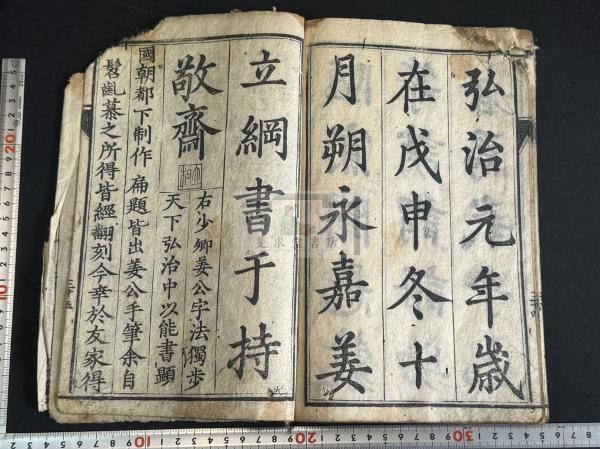 弘治元年歲
在戊申冬十
月朔永嘉姜
立綱書于持
敬齋
右少卿姜公字法獨步
天下弘治中以能書顯
國朝都下制作扁題皆出姜公手筆余自
髫齓慕之所得皆經翻刻今幸於友家得